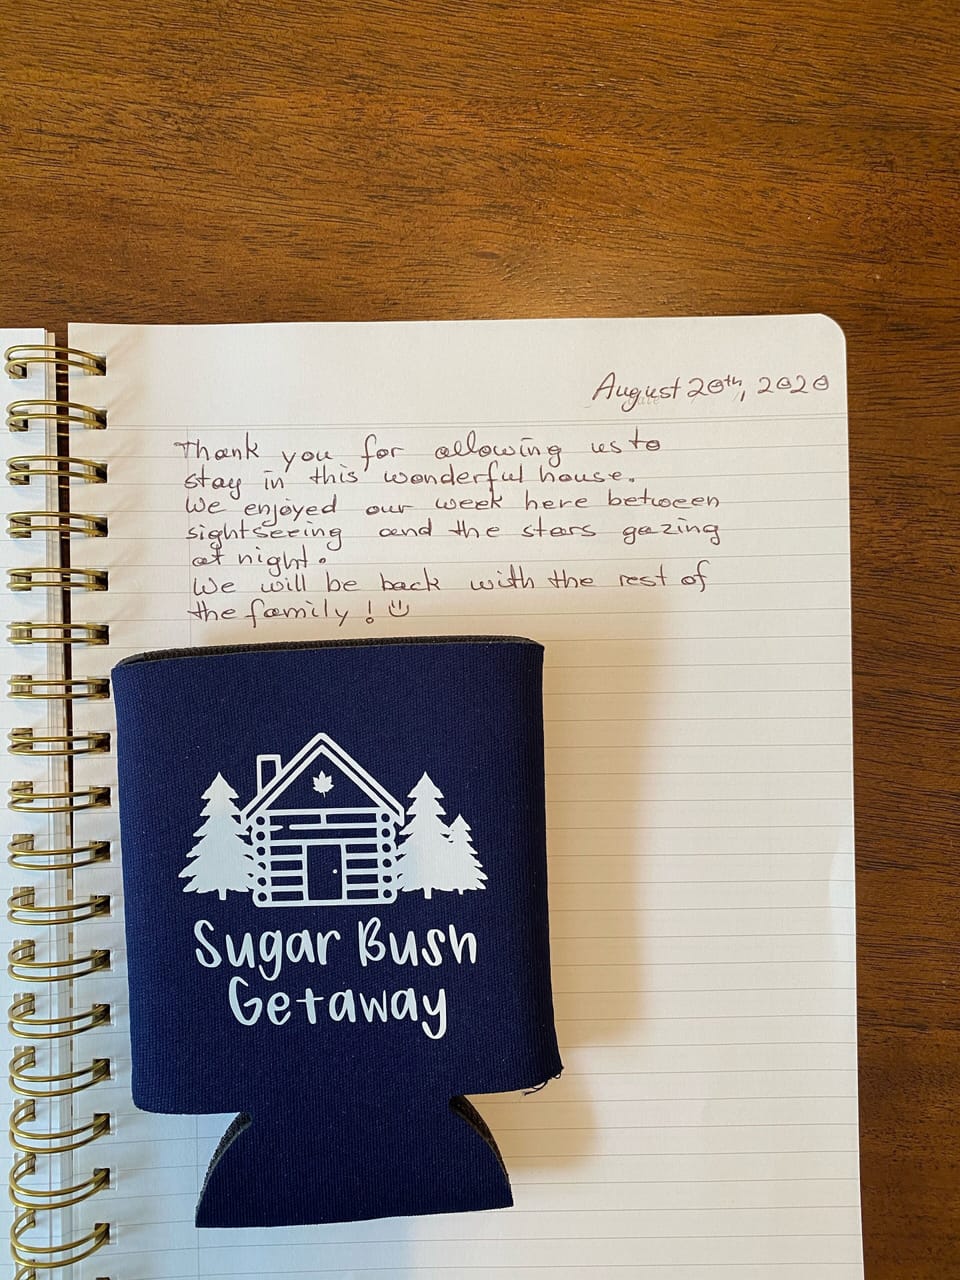 August 20th, 2020
Thank you for allowing us to
stay in this wonderful house.
We enjoyed our week here between
sightseeing and the stars gazing
at night.
We will be back with the rest of
the family! :)
Sugar Bush
Getaway